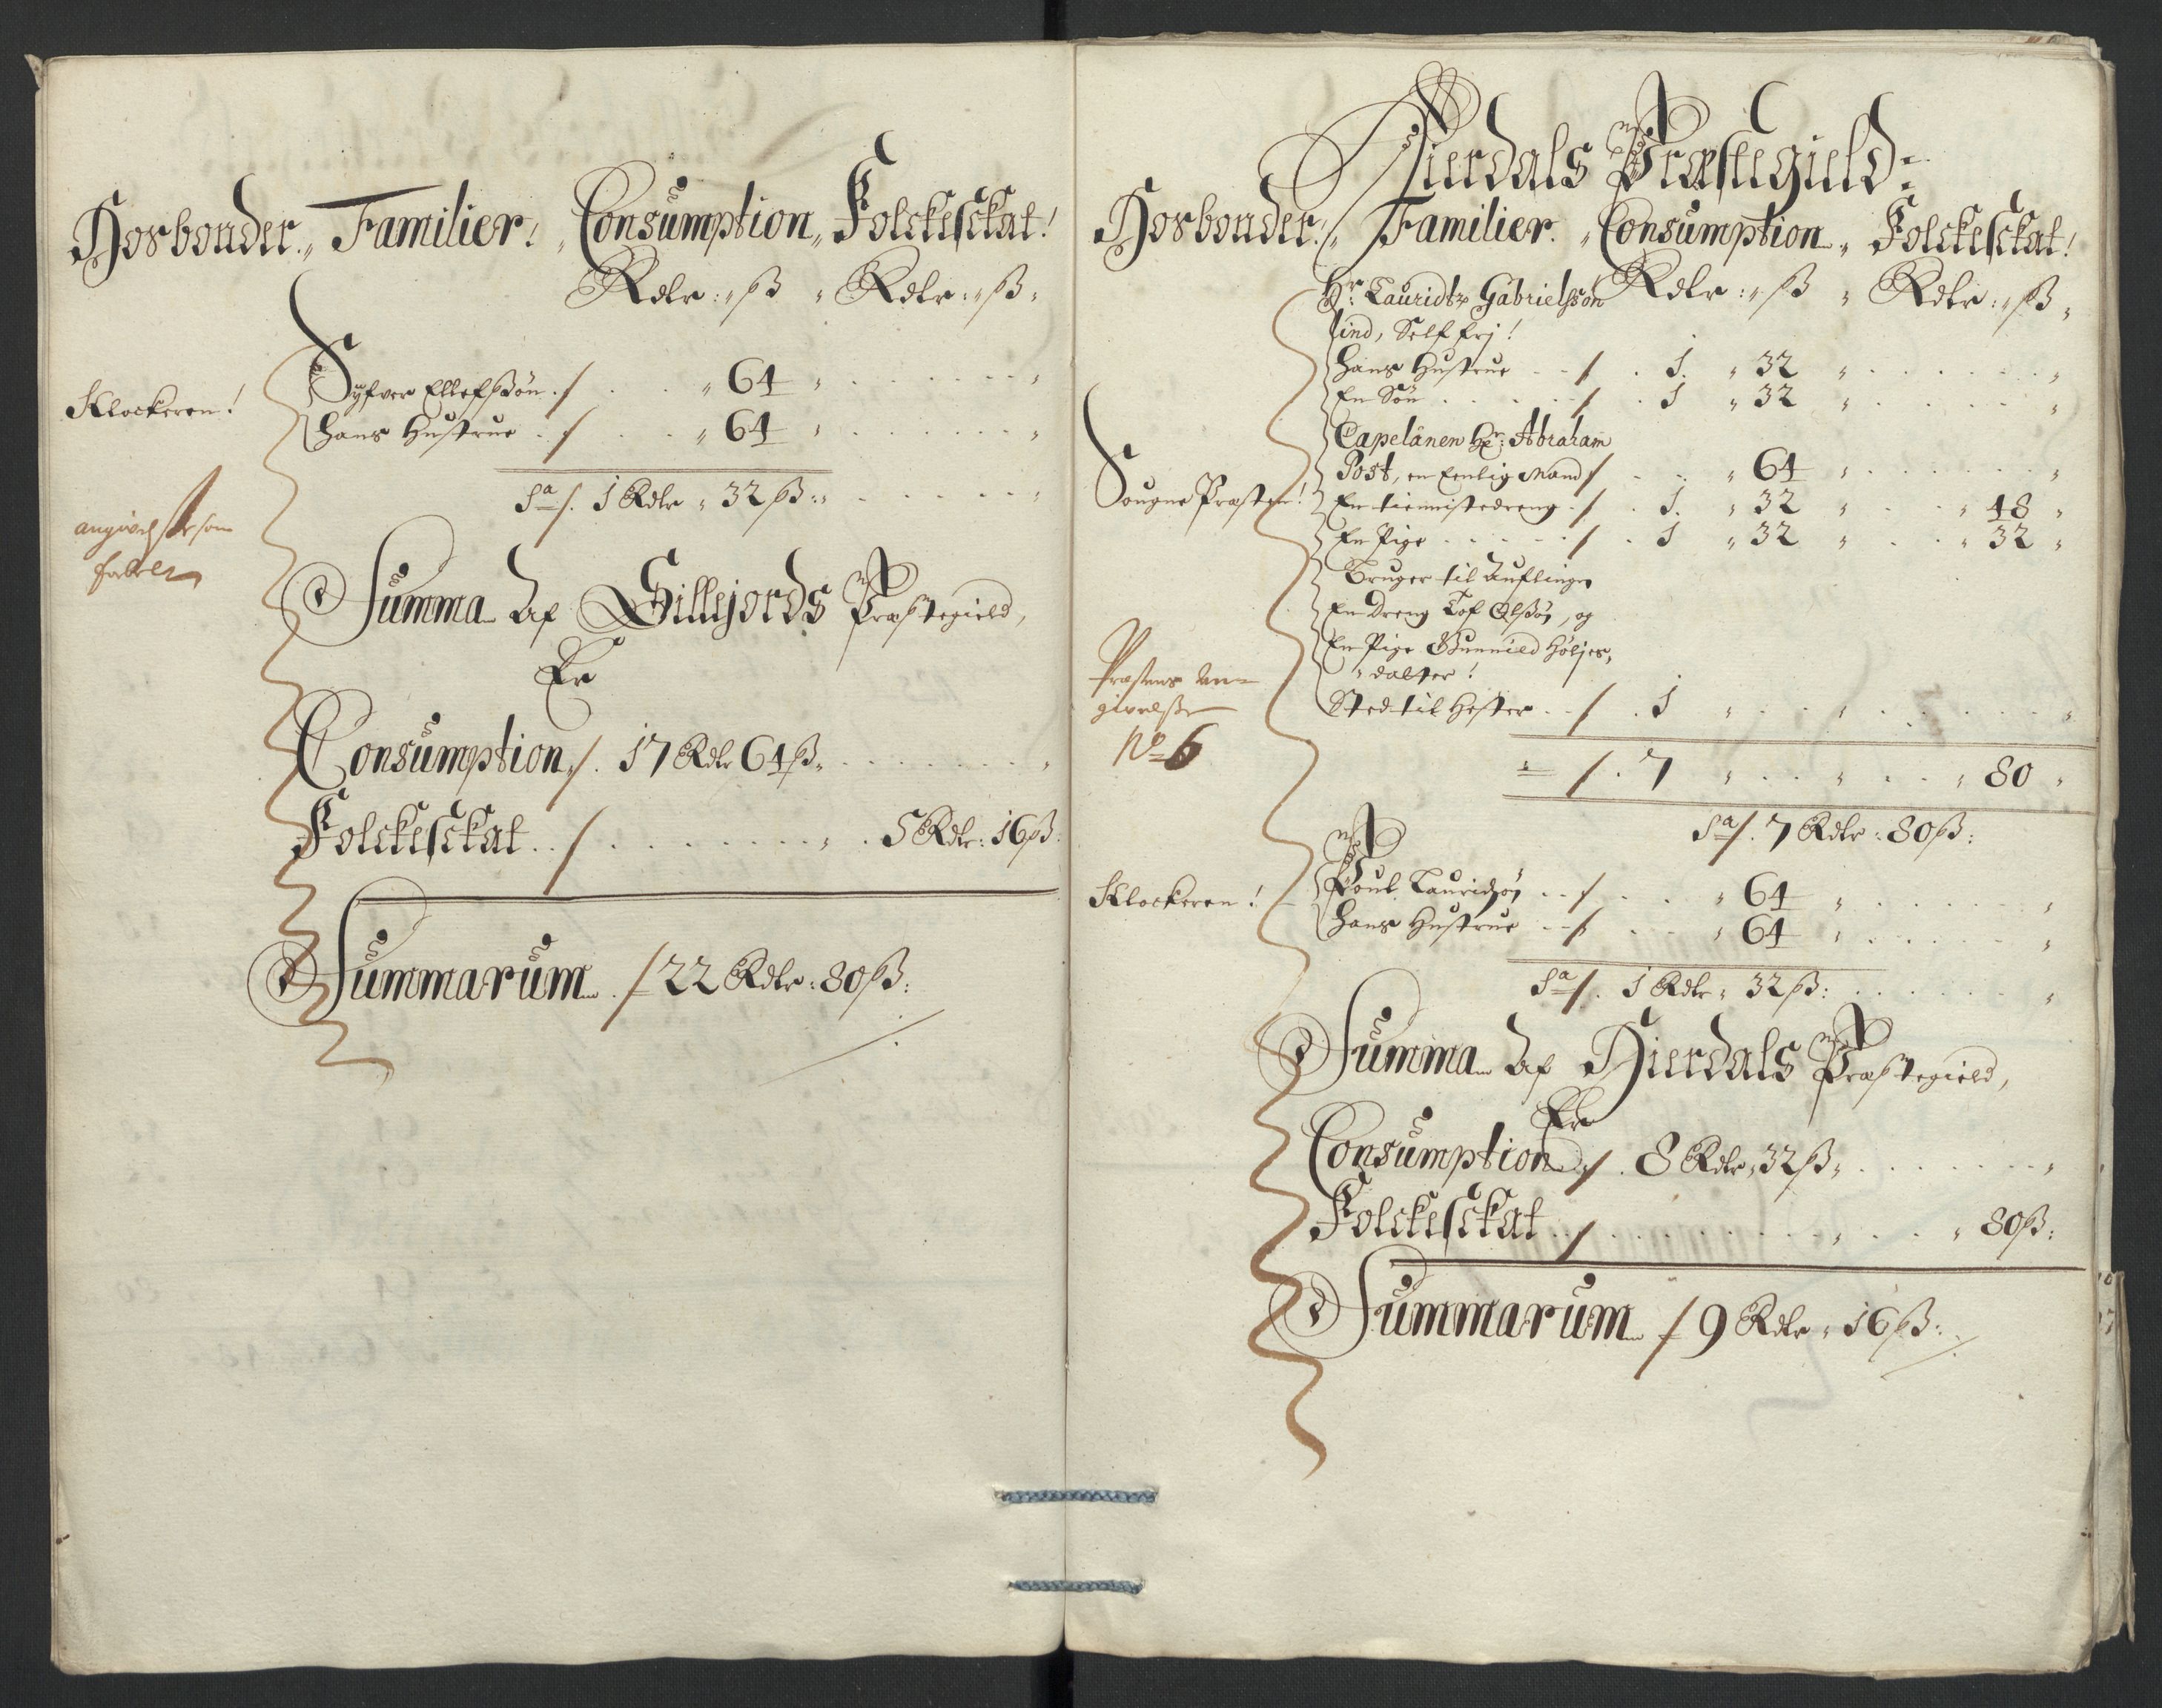 Hosbonder. „ Familier! „ Consumption „ Folckesckat!
Rdlr: „ ß „ Rdlr: „ ß „
Klockeren!
Syfver Ellefsøn ./. . . „ 64 „ . . . . . . „
Hans Hustrue ./. . . „ 64 „ . . . . . . „
Sa /. 1 Rdlr „ 32 ß: „ . . . . . . „
angivelse som
Summa Af Sillejords Præstegield,
Er
Consumption /. 17 Rdlr 64 ß „ . . . . . . „
Folckesckat . ./. . . . . . . . „ . 5 Rdlr: 16 ß:
Summarum ./ 22 Rdlr: 80 ß:
Hierdals Præstegield:
Hosbonder! „ Familier. „ Consumption „ Folckesckat!
Rdlr: „ ß „ Rdlr: „ ß „
Hr. Lauridtz Gabrielsøn
lind, Self frj!
Hans Hustrue . . /. . 1. „ 32 „ . . . . . . „
En Søn . . . . /. . 1 „ 32 „ . . . . . . „
Capelänen Hr: Abraham
Post, en Eenlig Mand /. . . „ 64 „ . . . . . . „
Sougne Præsten!
En tiennistedreng ./. . 1. „ 32 „ . . . „ 48 „
En Pige . . . . /. . 1 „ 32 „ . . . „ 32 „
Bruger til Auflinge
En Dreng Tof Olsøn, og
En Pige Gunnild Høljes„
„ datter!
Præstens An„
givelse
No 6
Sted til Hester . . /. . 1 „ . . . „ . . . . „
/. 7 „ . . „ . . . „ 80 „
Sa /. 7 Rdlr: 80 ß:
Klockeren!
Poul Lauridsøn . . /. . . „ 64 „ . . . . . . „
Hans Hustrue . . /. . . „ 64 „ . . . . . . „
Sa /. 1 Rdlr „ 32 ß: . . . . . . „
Summa Af Hierdals Præstegield,
Er
Consumption ./. 8 Rdlr „ 32 ß „ . . . . . . „
Folckesckat . /. . . . . . . . „ . . . „ 80 ß:
Summarum / 9 Rdlr „ 16 ß: